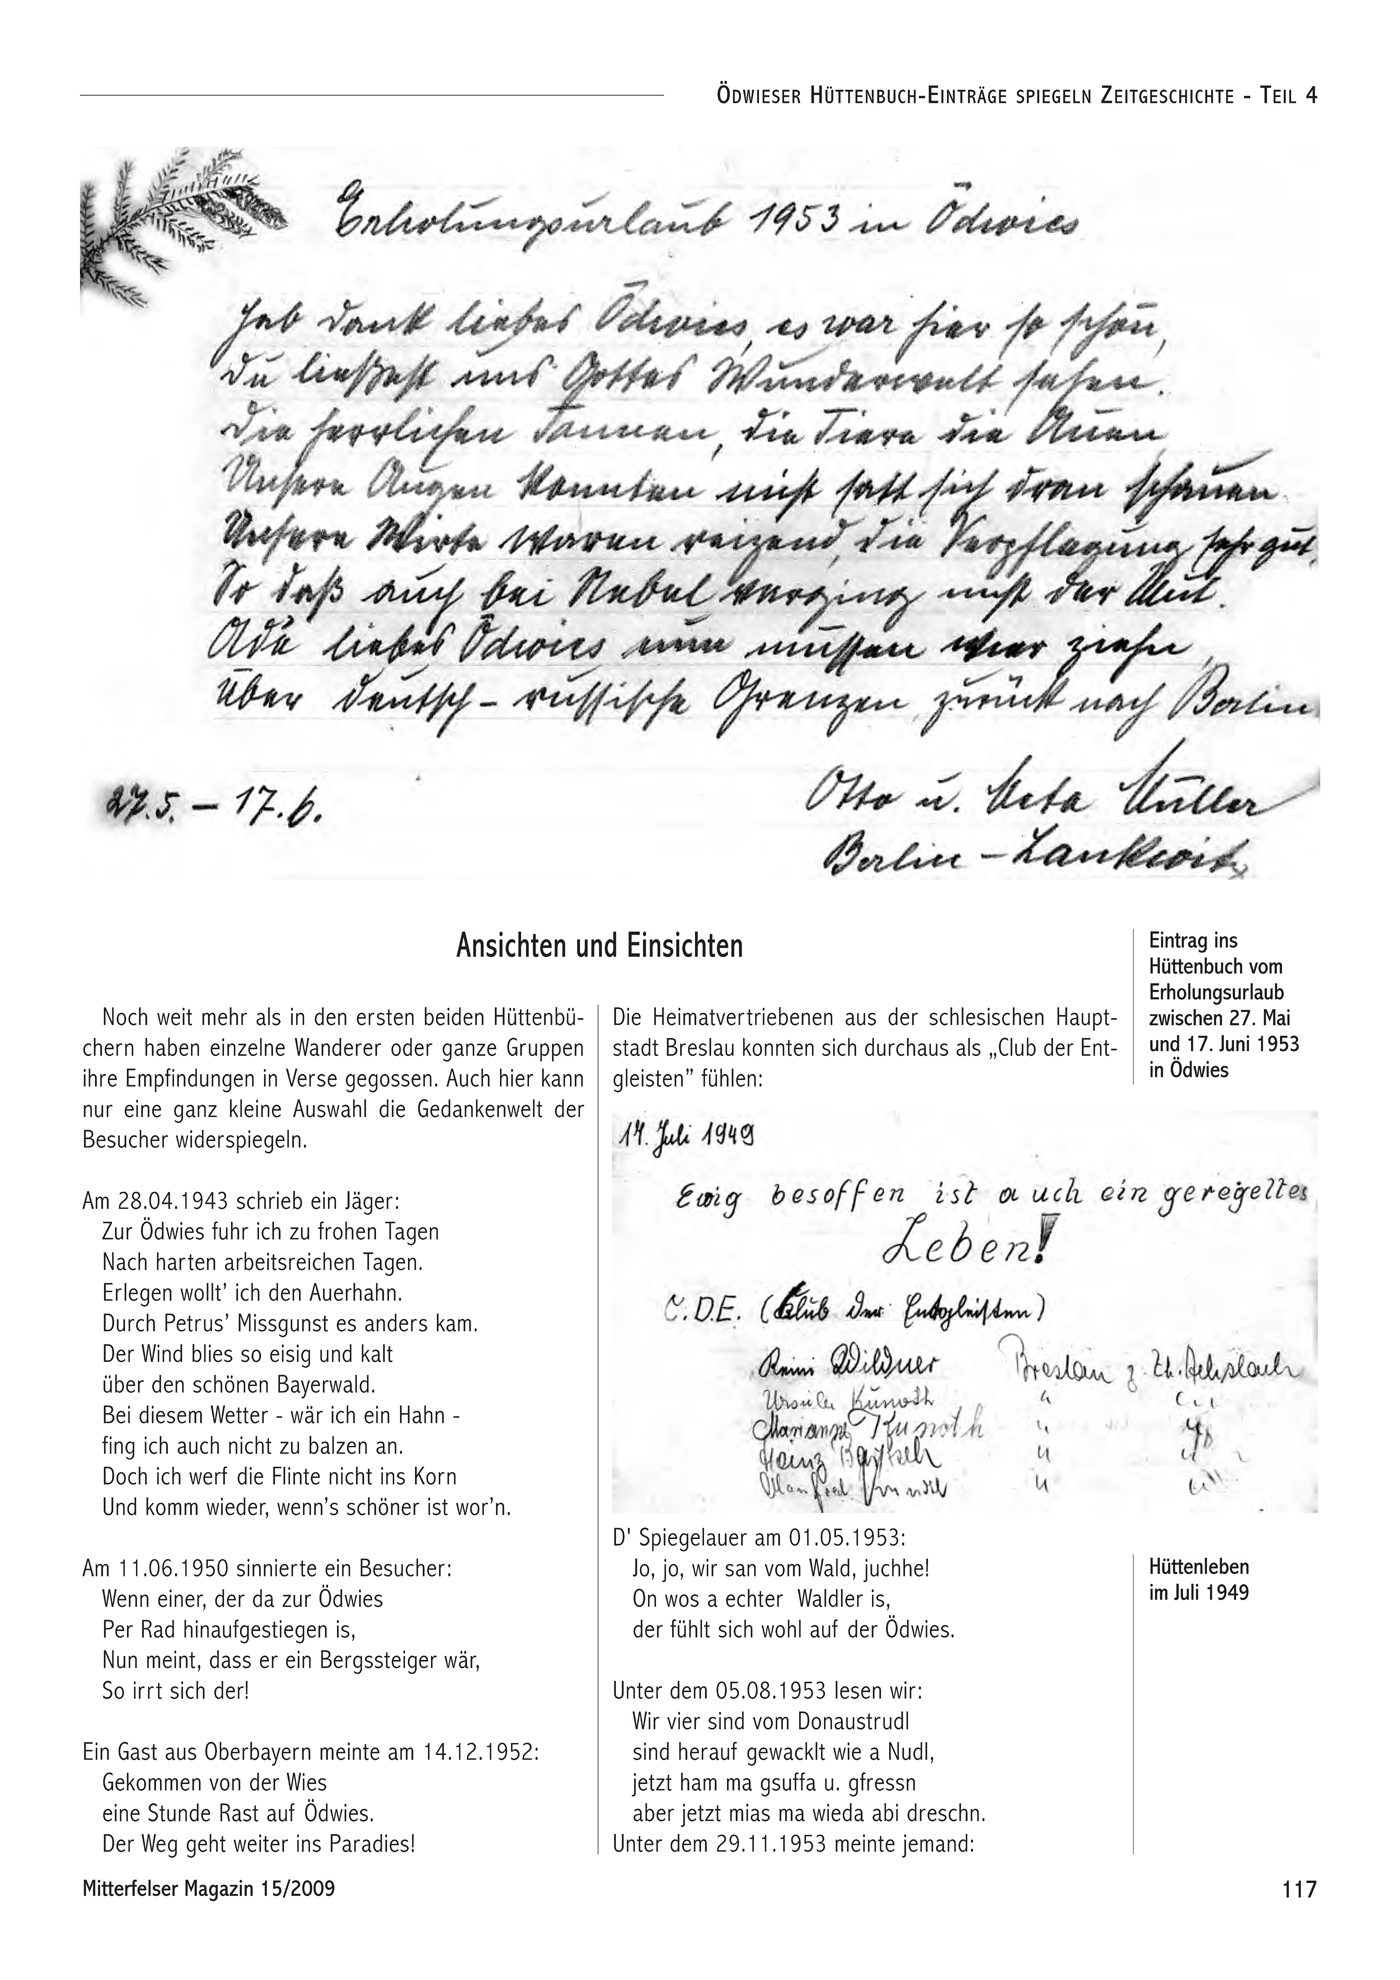 ÖDWIESER HÜTTENBUCH-EINTRÄGE SPIEGELN ZEITGESCHICHTE - TEIL 4
Erholungsurlaub 1953 in Ödwies
Hab dank liebes Ödwies, es war hier so schön,
Du ließest uns Gottes Wunderwelt sehen.
Die herrlichen Tannen, die Tiere die Auen
Unsere Augen konnten nicht satt sich dran schauen.
Unsere Wirte waren reizend, die Verpflegung sehr gut,
So daß auch bei Nebel verging nicht der Mut.
Adé liebes Ödwies nun müssen wir ziehn,
über deutsch-russische Grenzen, zurück nach Berlin
27.5. – 17.6.
Otto u. Meta Müller
Berlin – Lankwitz
Ansichten und Einsichten
Noch weit mehr als in den ersten beiden Hüttenbü-
chern haben einzelne Wanderer oder ganze Gruppen
ihre Empfindungen in Verse gegossen. Auch hier kann
nur eine ganz kleine Auswahl die Gedankenwelt der
Besucher widerspiegeln.
Am 28.04.1943 schrieb ein Jäger:
Zur Ödwies fuhr ich zu frohen Tagen
Nach harten arbeitsreichen Tagen.
Erlegen wollt' ich den Auerhahn.
Durch Petrus' Missgunst es anders kam.
Der Wind blies so eisig und kalt
über den schönen Bayerwald.
Bei diesem Wetter - wär ich ein Hahn -
fing ich auch nicht zu balzen an.
Doch ich werf die Flinte nicht ins Korn
Und komm wieder, wenn's schöner ist wor'n.
Am 11.06.1950 sinnierte ein Besucher:
Wenn einer, der da zur Ödwies
Per Rad hinaufgestiegen is,
Nun meint, dass er ein Bergssteiger wär,
So irrt sich der!
Ein Gast aus Oberbayern meinte am 14.12.1952:
Gekommen von der Wies
eine Stunde Rast auf Ödwies.
Der Weg geht weiter ins Paradies!
Die Heimatvertriebenen aus der schlesischen Haupt-
stadt Breslau konnten sich durchaus als „Club der Ent-
gleisten" fühlen:
17. Juli 1949
Ewig besoffen ist auch ein geregeltes
Leben!
C.D.E. (Club der Entgleisten)
Wildner Breslau z. Zt.
Ursula Kunoth "
Marianne Kunoth "
Heinz "
"
D' Spiegelauer am 01.05.1953:
Jo, jo, wir san vom Wald, juchhe!
On wos a echter Waldler is,
der fühlt sich wohl auf der Ödwies.
Unter dem 05.08.1953 lesen wir:
Wir vier sind vom Donaustrudl
sind herauf gewacklt wie a Nudl,
jetzt ham ma gsuffa u. gfressn
aber jetzt mias ma wieda abi dreschn.
Unter dem 29.11.1953 meinte jemand:
Eintrag ins
Hüttenbuch vom
Erholungsurlaub
zwischen 27. Mai
und 17. Juni 1953
in Ödwies
Hüttenleben
im Juli 1949
Mitterfelser Magazin 15/2009
117